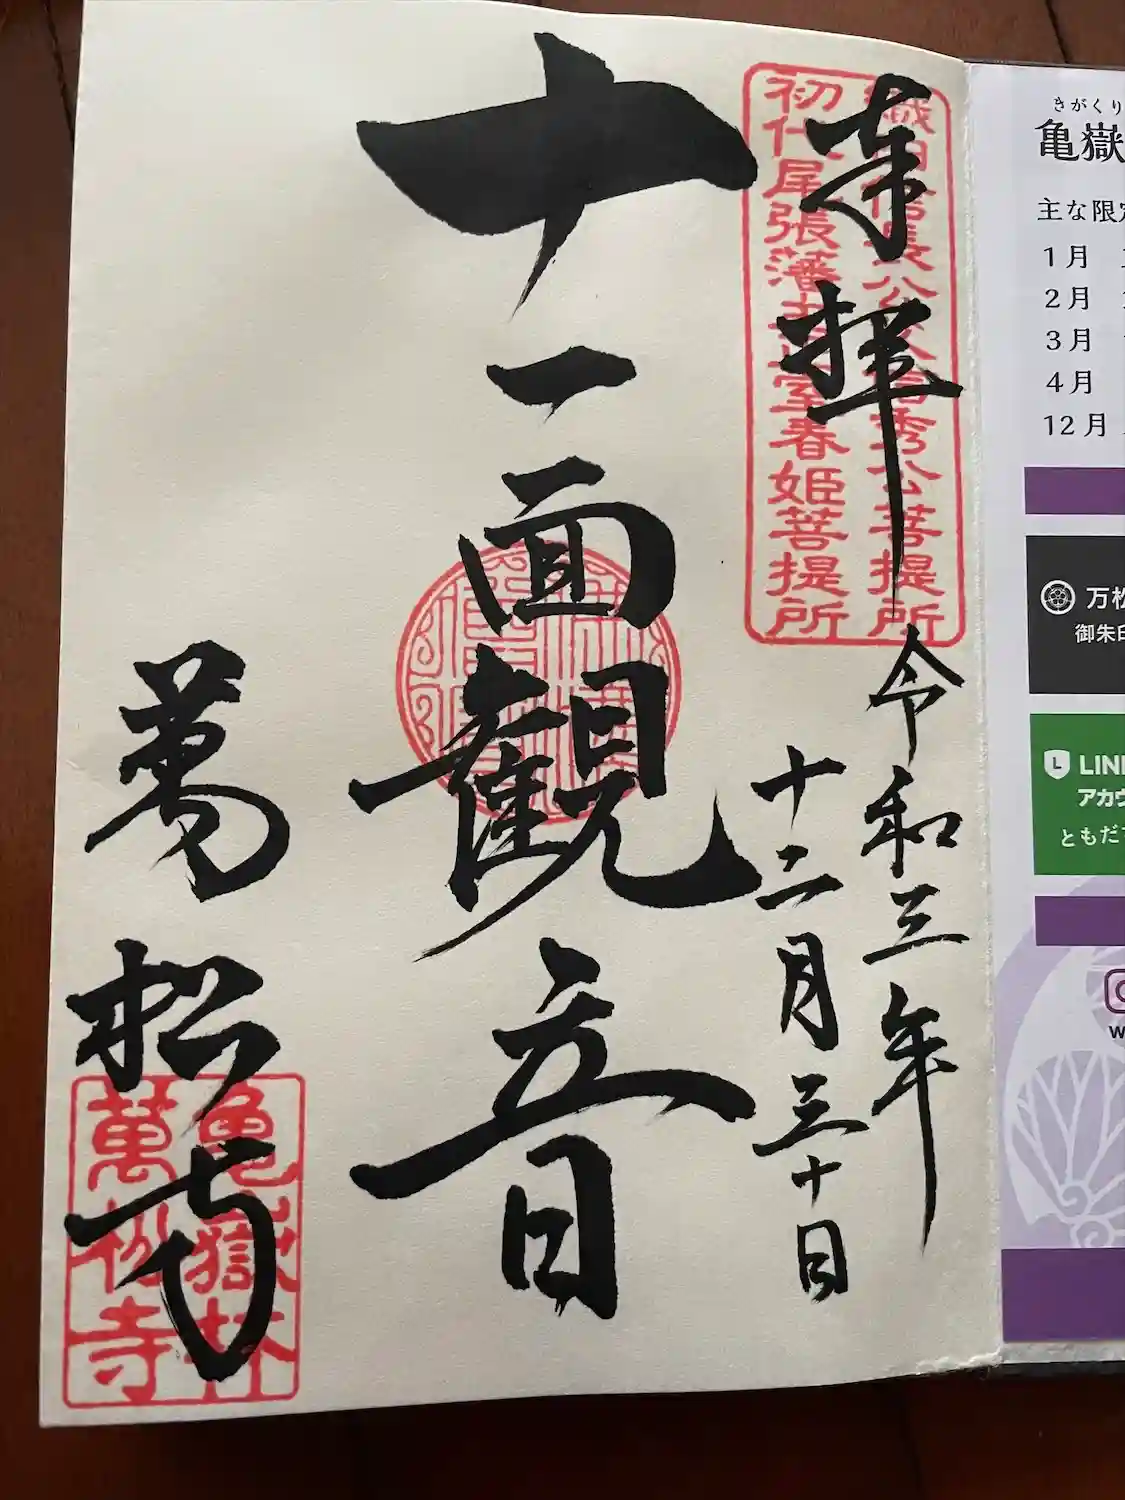 奉拝
織田信長公父君信秀公菩提所
初代尾張藩主正室春姫菩提所
令和三年
十二月三十日
十一面観音
萬松寺
亀嶽林
萬松寺
きがくり
亀嶽
主な限定
1月
2月
3月
4月
12月
万松
御朱印
LINE
アカウ
ともだ